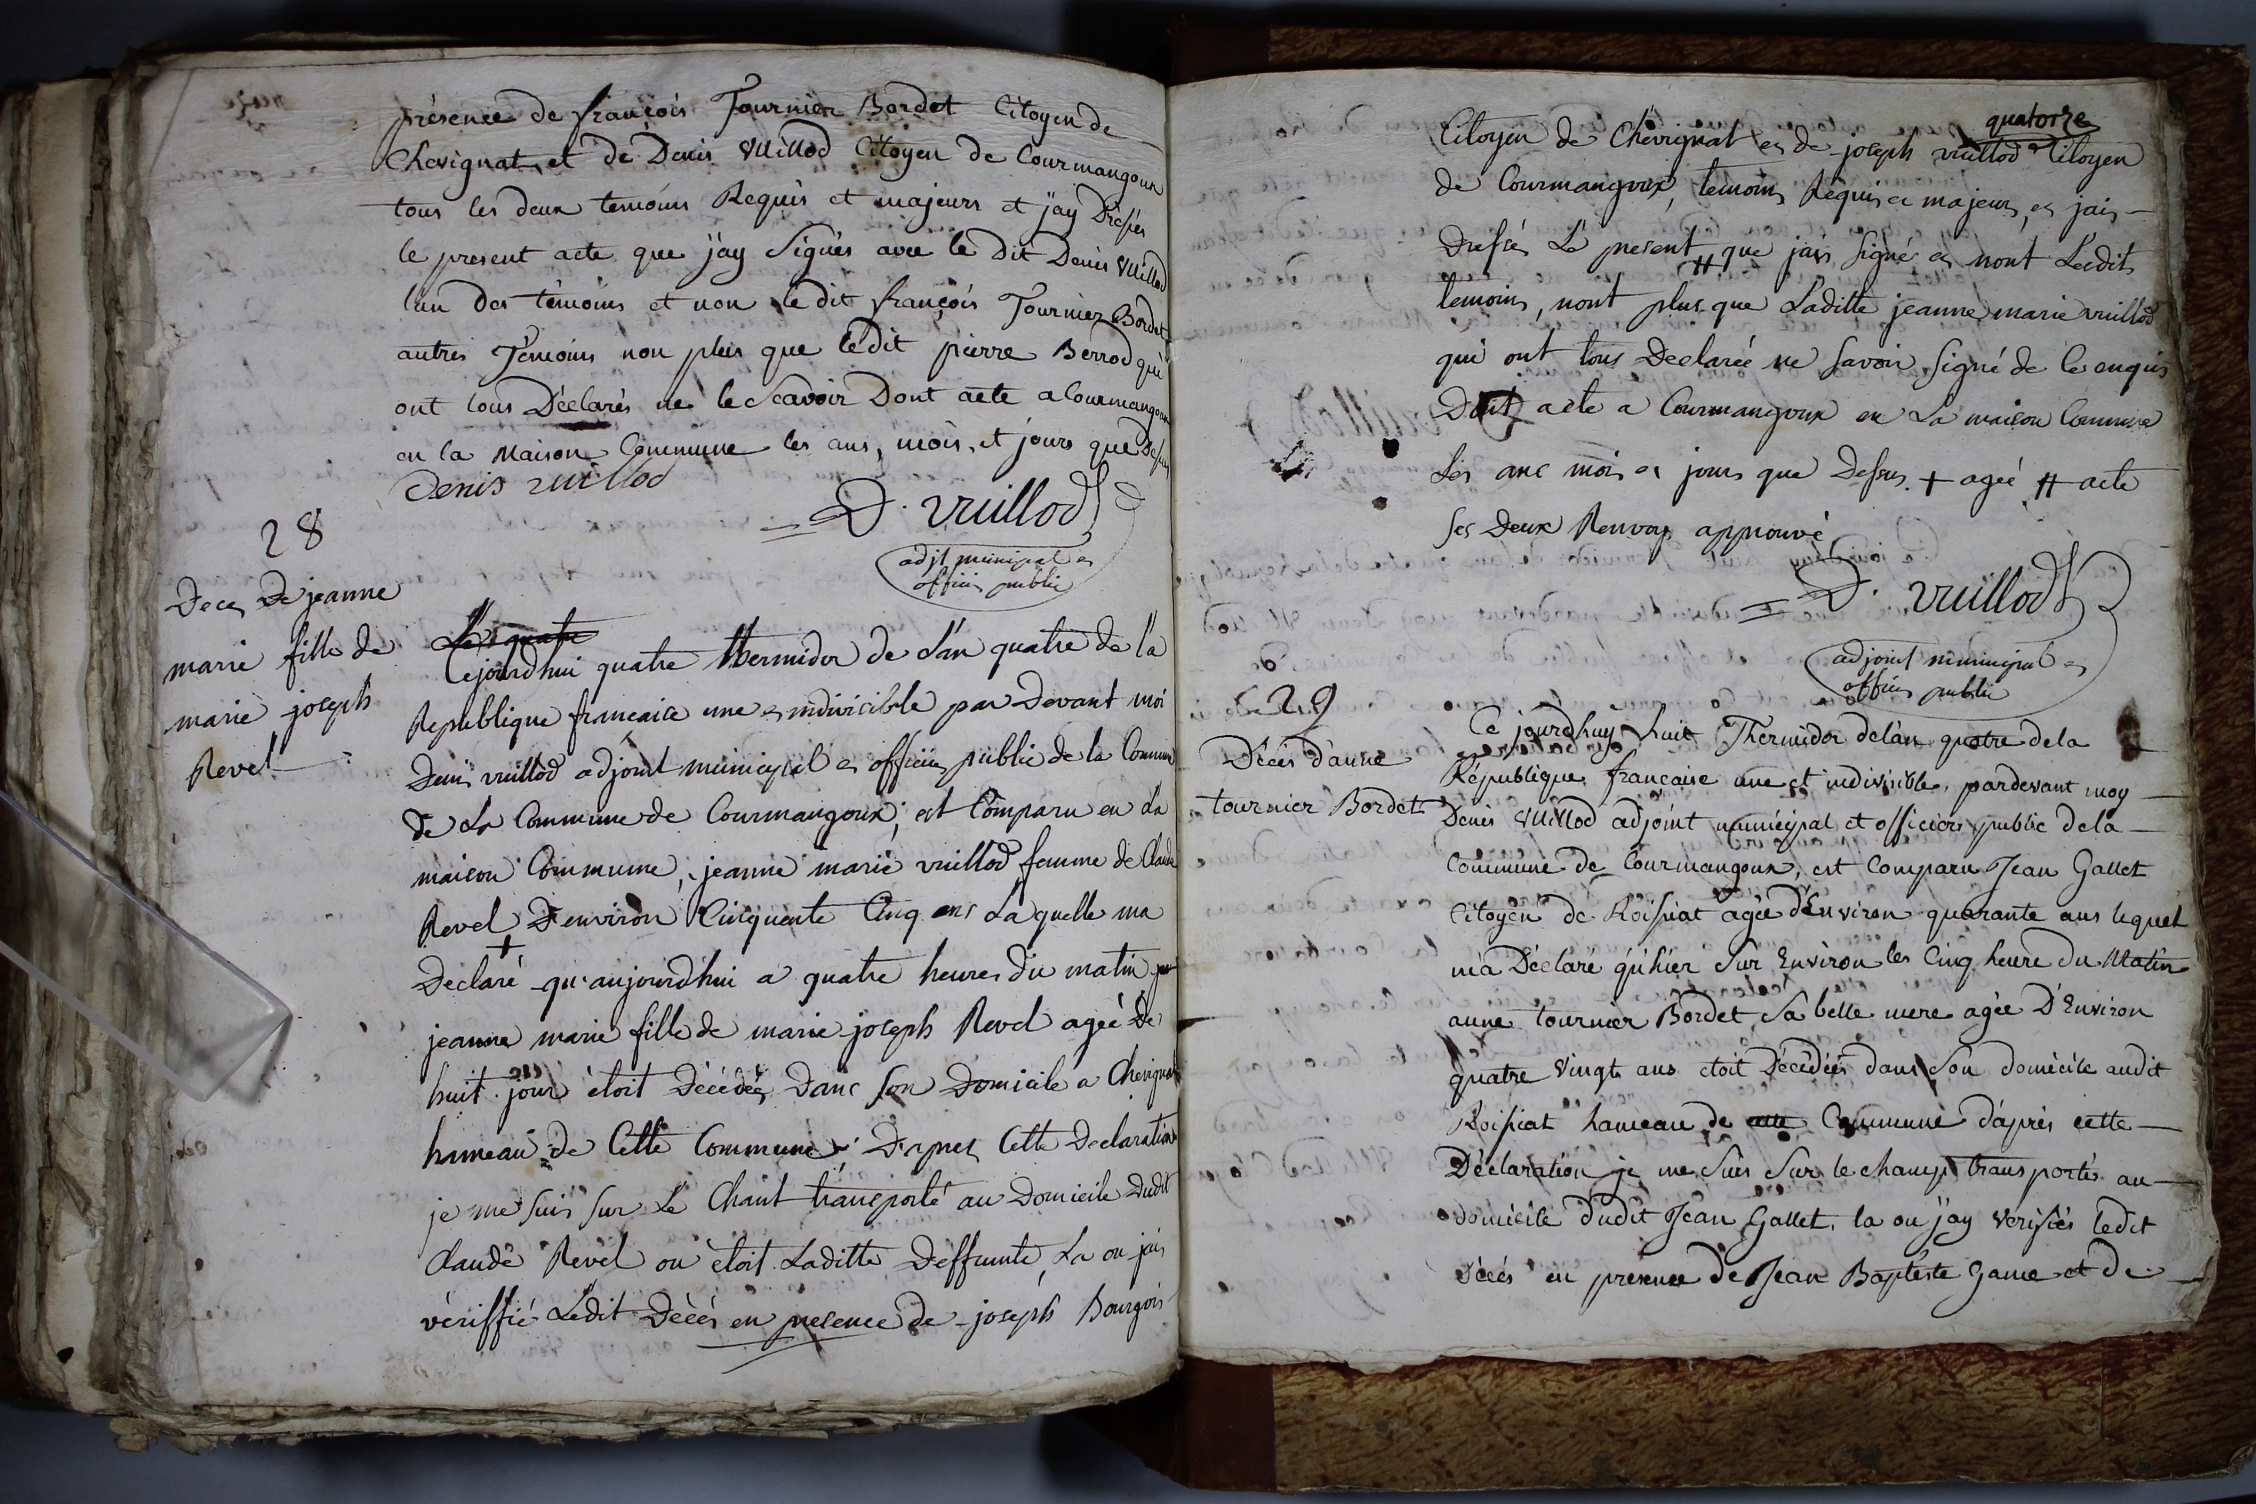 présence de françois Tournier Bordet Citoyen de
Chevignat et de Denis Vuillod Citoyen de Courmangoux
tous les deux temoins Requis et majeurs et j'ay Dressés
le present acte que j'ay Signés avec le dit Denis Vuillod
lun des témoins et non le dit françois Tournier Bordet
autres Témoins non plus que ledit pierre Berrod qui
ont tous Déclarés ne le Scavoir Dont acte a Courmangoux
en la Maison Commune les ans, mois, et jours que Dessus
Denis vuillod
D. vuillod
adjt municipal et
officier public
28
Deces De jeanne
marie fille de
marie joseph
Revel
Le quatre
Cejourdhui quatre thermidor de L'an quatre de la
Republique francaise une et indivisible par Devant moi
Denis vuillod adjoint municipal et officier public de la Commune
de La Commune de Courmangoux, est Comparu en La
maison Commune, jeanne marie vuillod femme de Claude
Revel D'environ Cinquente Cinq ans Laquelle ma
+
Declaré qu'aujourdhui a quatre heures du matin que
jeanne marie fille de marie joseph Revel agée De
huit jour étoit Décédée Dans son Domicile a Chevignat
hameau de Cette Commune D'apres Cette Declaration
je me suis sur Le Chant transporté au Domicile Dudit
Claude Revel ou étoit Laditte Deffunte, La ou jais
vériffié Ledit Décés en presence de joseph Bourgois
quatorze
Citoyen de Chevignat et de joseph vuillod Citoyen
de Courmangoux, temoins Requis et majeurs, et jais
Dressés Le present # que jais signé et nont Lesdits
temoins, nont plus que Laditte jeanne marie vuillod
qui ont tous Declarée ne savoir signé de ce enquis
Dont acte a Courmangoux en La maison Commune
Les ans mois et jours que Dessus + agée # acte
ses Deux Renvoys approuvé
D. vuillod
adjoint municipal et
officier public
29
Décès d'anne
tournier Bordet
Ce jourdhuy huit Thermidor delan quatre dela
République francaise une et indivisible, pardevant moy
Denis Vuillod adjoint municipal et officiers public dela
Commune de Courmangoux, est Comparu Jean Gallet
Citoyen de Roissiat agée d'Environ quarante ans lequel
m'a Déclaré qu'hier Sur Environ les Cinq heure du Matin
anne tournier Bordet, Sa belle mere agée D'Environ
quatre Vingts ans etoit Décédéés dans Son domicile audit
Roissiat hameau de cette Commune d'après cette
Déclaration je me Suis Sur le champ transportés au
domicile dudit Jean Gallet, la ou j'ay Verifiés ledit
Décés en présence de Jean Baptiste Game et de